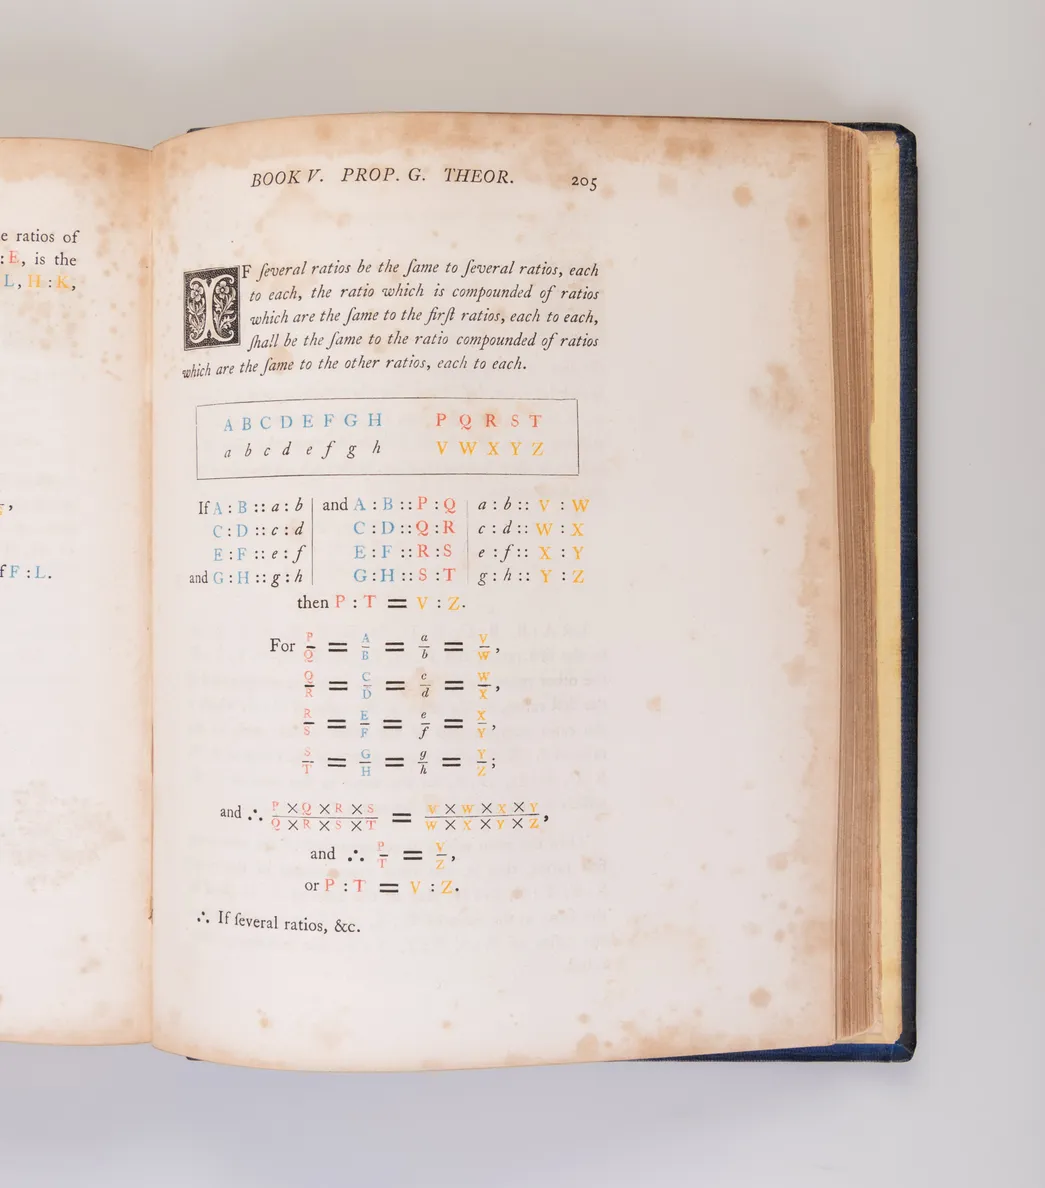 e ratios of
: E, is the
L, H : K,
f F : L.
BOOK V. PROP. G. THEOR. 205
IF ſeveral ratios be the ſame to ſeveral ratios, each
to each, the ratio which is compounded of ratios
which are the ſame to the firſt ratios, each to each,
ſhall be the ſame to the ratio compounded of ratios
which are the ſame to the other ratios, each to each.
A B C D E F G H P Q R S T
a b c d e f g h V W X Y Z
If A : B :: a : b and A : B :: P : Q a : b :: V : W
C : D :: c : d C : D :: Q : R c : d :: W : X
E : F :: e : f E : F :: R : S e : f :: X : Y
and G : H :: g : h G : H :: S : T g : h :: Y : Z
then P : T = V : Z.
For P/Q = A/B = a/b = V/W,
Q/R = C/D = c/d = W/X,
R/S = E/F = e/f = X/Y,
S/T = G/H = g/h = Y/Z;
and ∴ P × Q × R × S / Q × R × S × T = V × W × X × Y / W × X × Y × Z,
and ∴ P/T = V/Z,
or P : T = V : Z.
∴ If ſeveral ratios, &c.